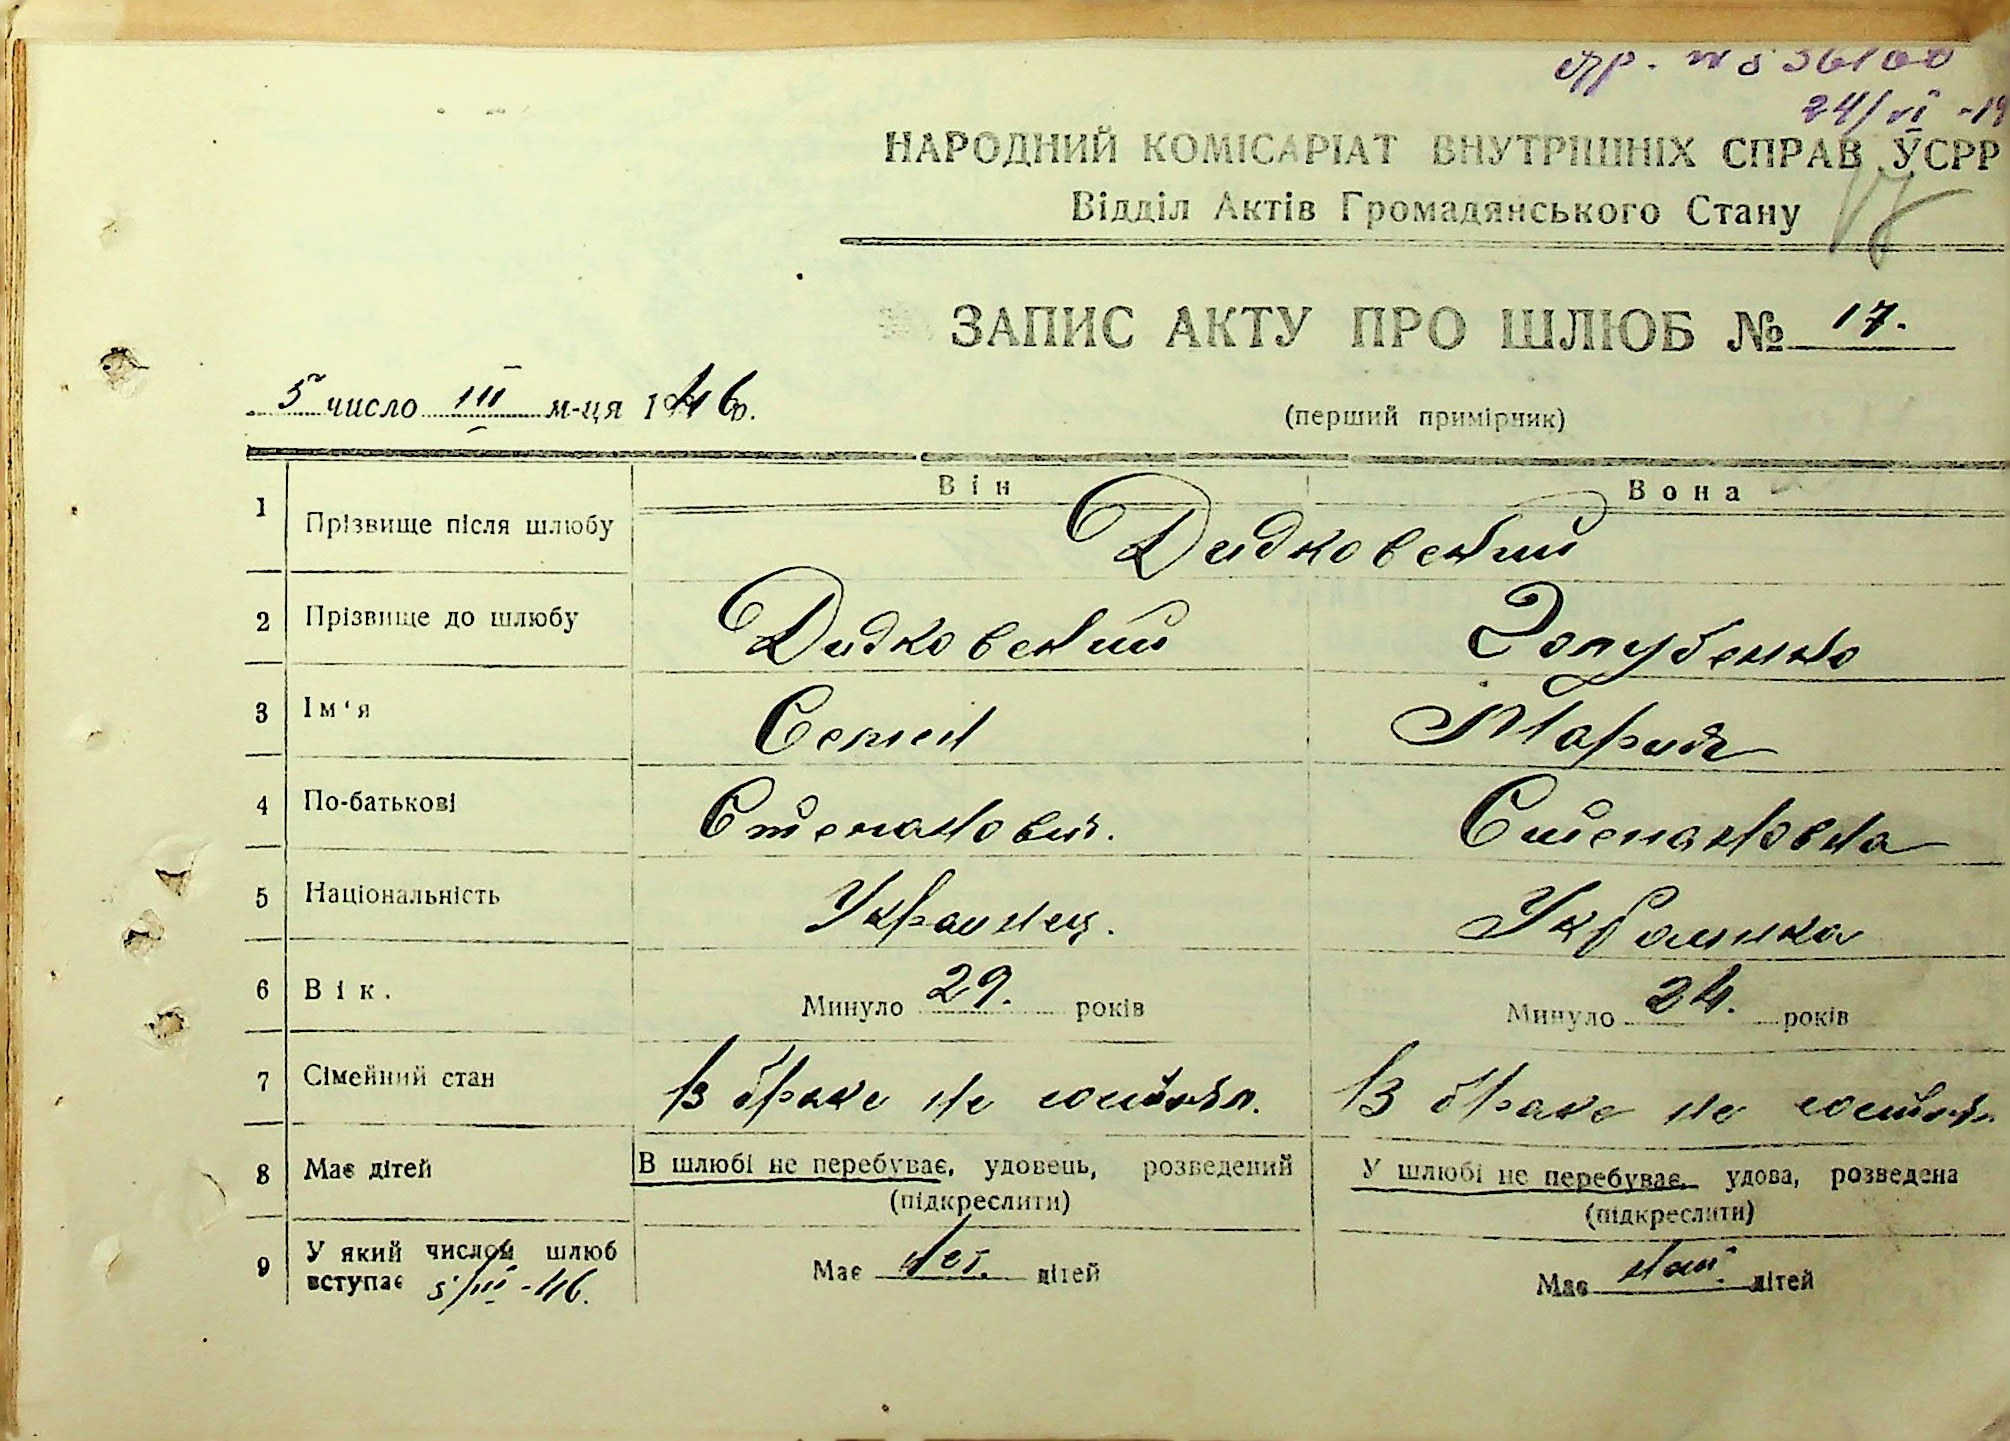 № 536100
24/VI -19
НАРОДНИЙ КОМІСАРІАТ ВНУТРІШНІХ СПРАВ УСРР
Відділ Актів Громадянського Стану
17
ЗАПИС АКТУ ПРО ШЛЮБ № 17.
5 число III м-ця 1946 р.
(перший примірник)
Він Вона
1 Прізвище після шлюбу Дидковский
2 Прізвище до шлюбу Дидковский Голубенко
3 Ім'я Семен Мария
4 По-батькові Степанович. Степановна
5 Національність Украинец. Украинка
6 Вік. Минуло 29. років Минуло 24. років
7 Сімейний стан В браке не состоял. В браке не состоял.
8 Має дітей В шлюбі не перебуває, удовець, розведений У шлюбі не перебуває, удова, розведена
(підкреслити) (підкреслити)
9 У який числом шлюб вступає 5/III-46. Має нет. дітей Має нет. дітей